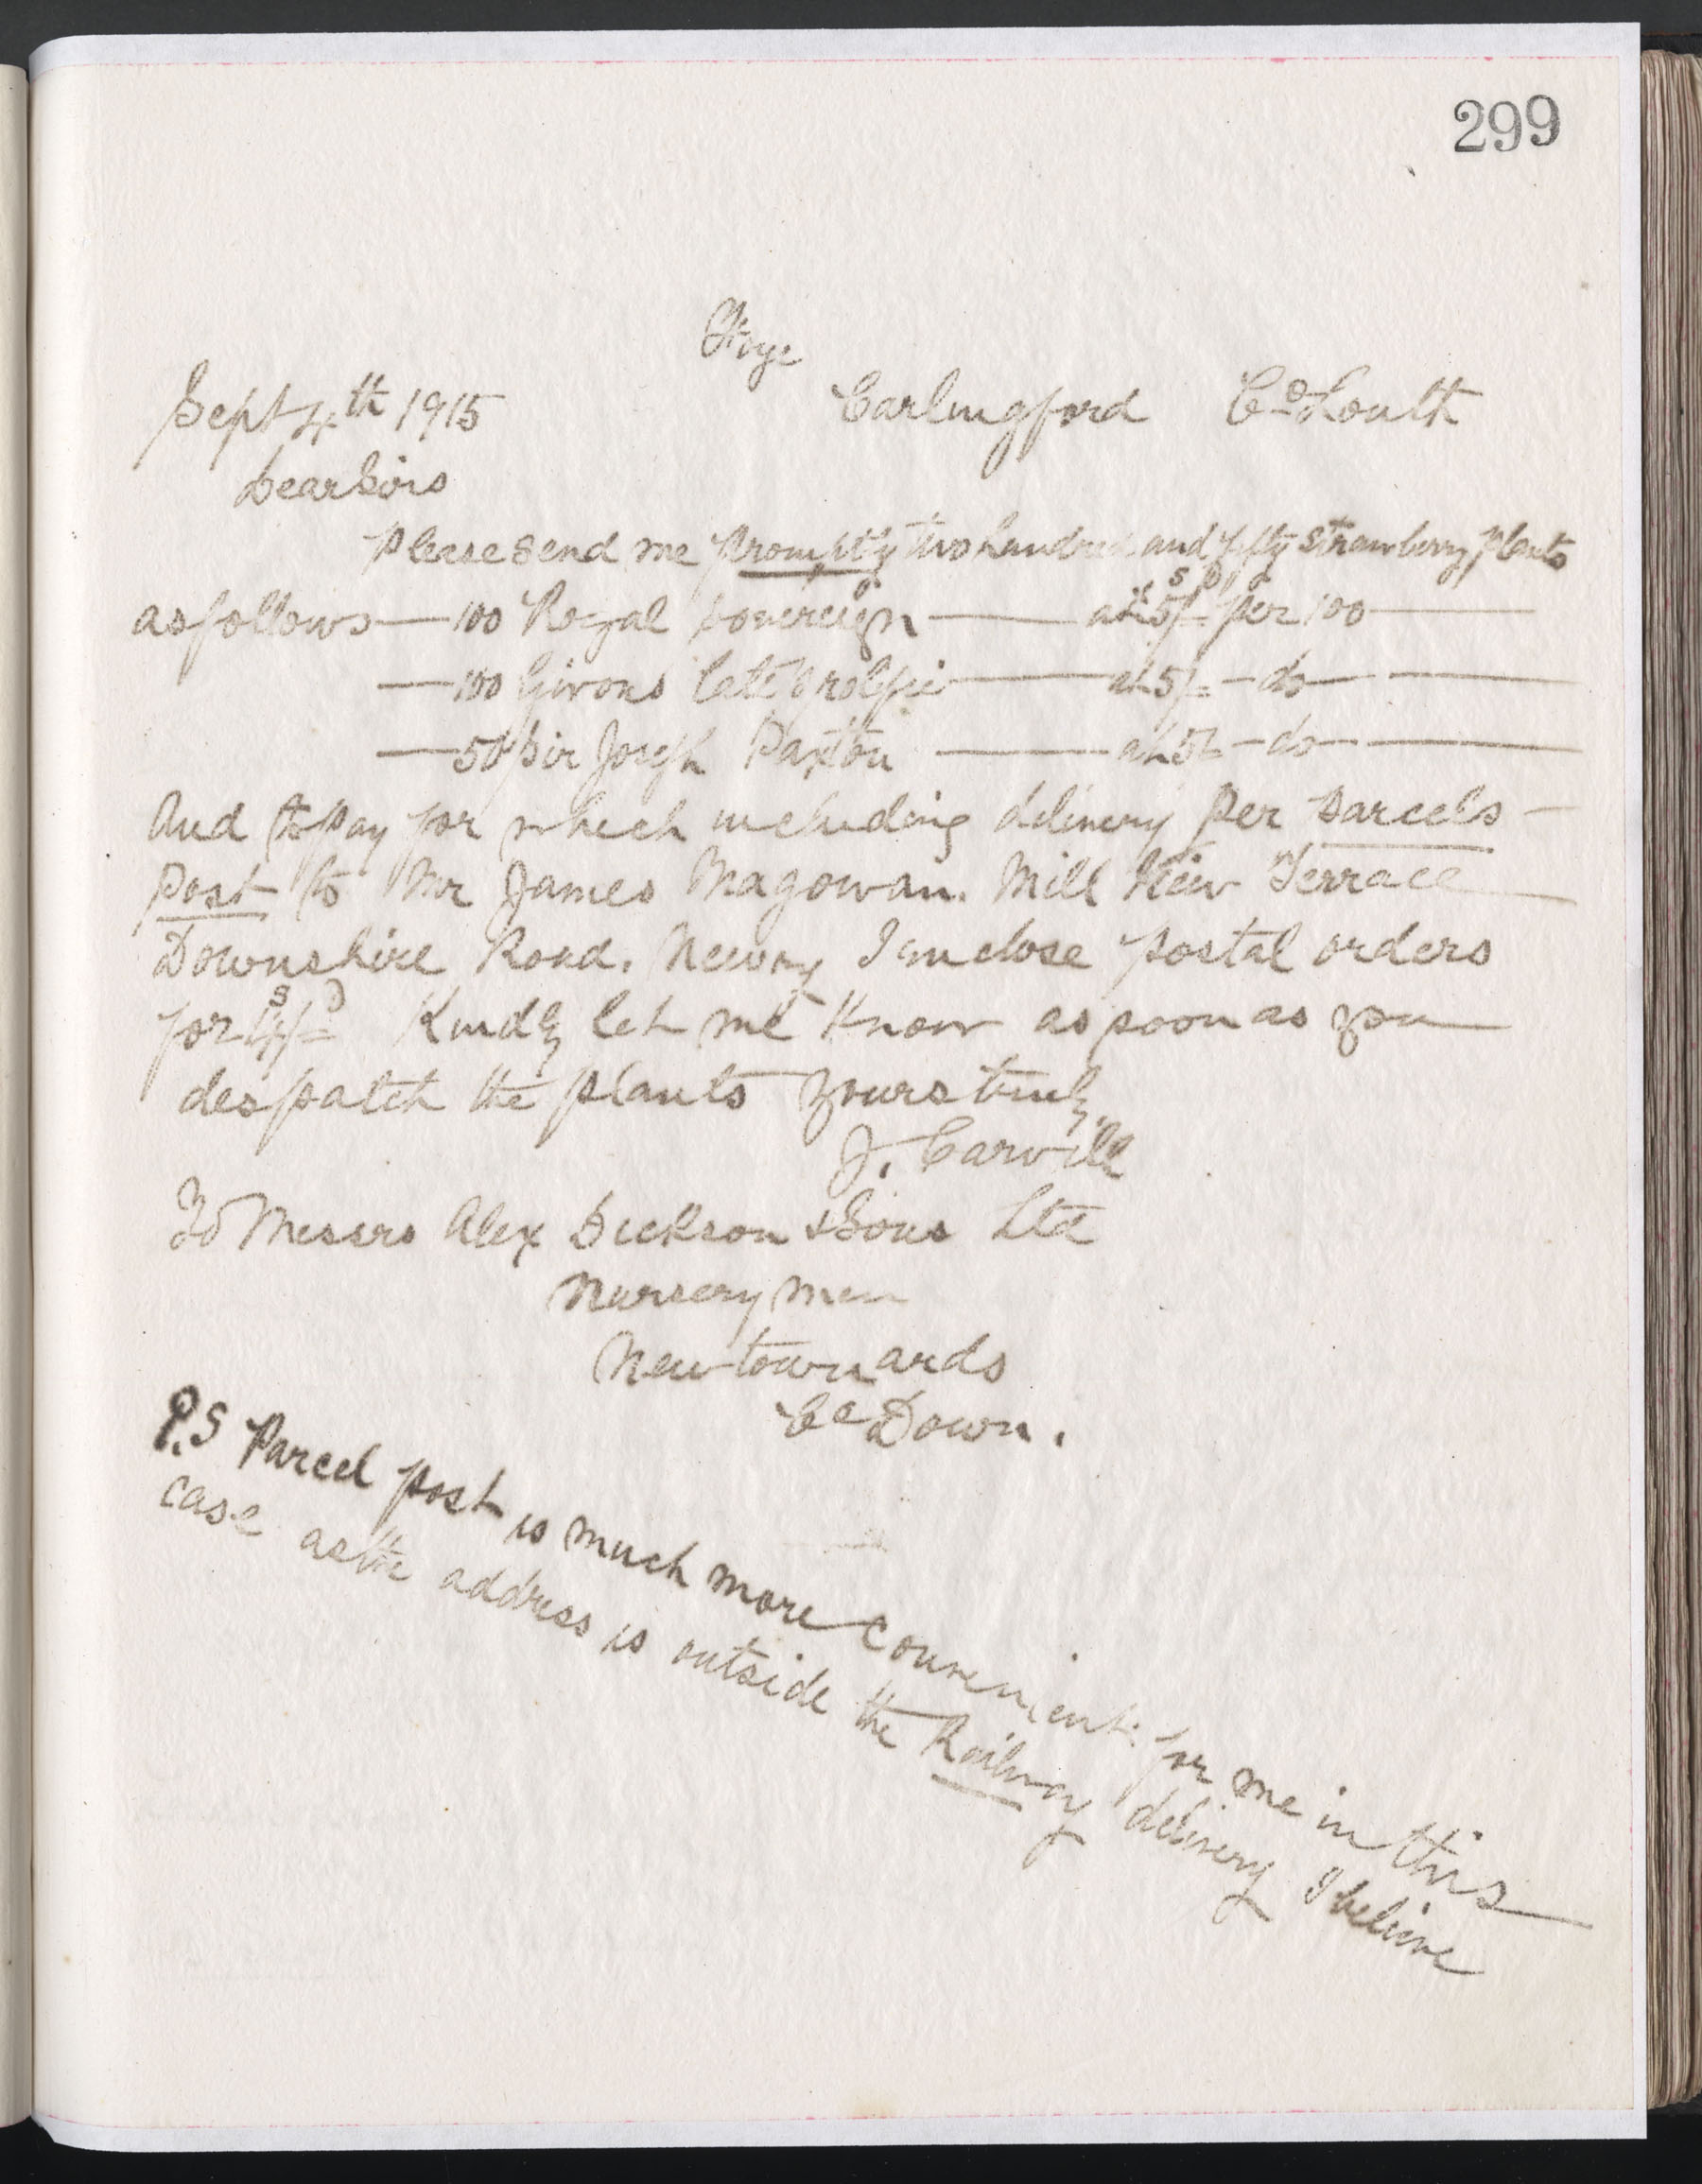 299
Sept 4th 1915
Carlingford Co Louth
Dear Sirs
Please send me promptly two hundred and fifty strawberry plants
as follows — 100 Royal Sovereign — at 5/= per 100 —
— 100 Givons late prolific — at 5/= — do —
— 50 Sir Joseph Paxton — at 5/= — do —
And to pay for which including delivery per parcels —
post to Mr James Magowan. Mill View Terrace
Downshire Road. Newry I inclose postal orders
for /= Kindly let me know as soon as you
despatch the plants yours truly
J. Carvill
To Messrs Alex Dickson & Sons Ltd
Nursery men
Newtownards
Co Down.
P.S Parcel post is much more convenient for me in this
case as the address is outside the Railway delivery I believe